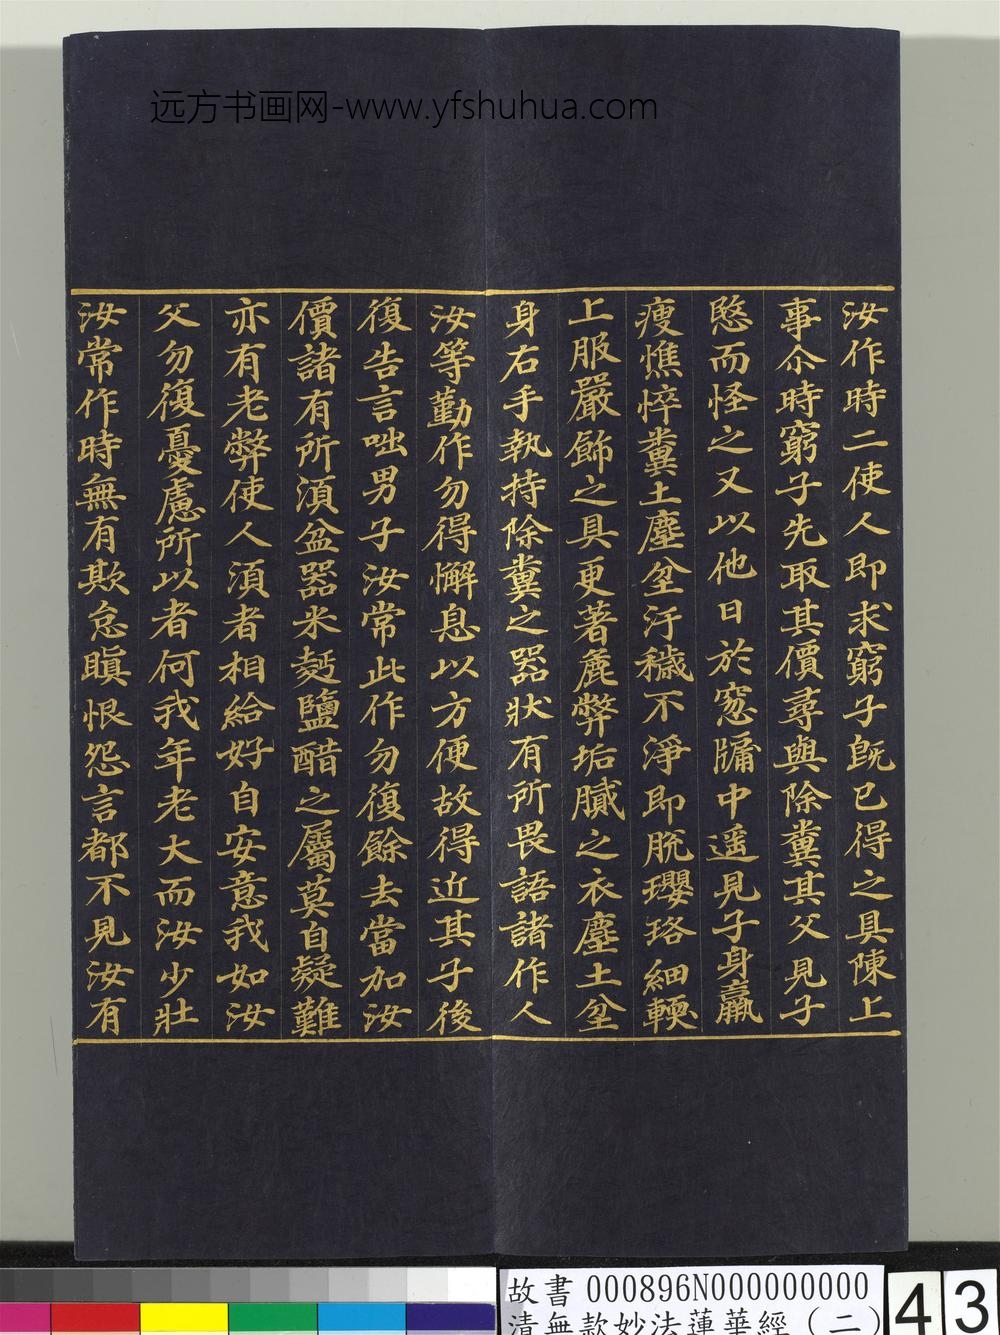 远方书画网-www.yfshuhua.com
汝作時二使人即求窮子既已得之具陳上
事尒時窮子先取其價尋與除糞其父見子
愍而怪之又以他日於窓牖中遥見子身羸
瘦憔悴糞土塵坌汙穢不淨即脫瓔珞細輭
上服嚴飾之具更著麁弊垢膩之衣塵土坌
身右手執持除糞之器狀有所畏語諸作人
汝等勤作勿得懈息以方便故得近其子後
復告言咄男子汝常此作勿復餘去當加汝
價諸有所須盆器米麪鹽醋之屬莫自疑難
亦有老弊使人須者相給好自安意我如汝
父勿復憂慮所以者何我年老大而汝少壯
汝常作時無有欺怠瞋恨怨言都不見汝有
故書 000896N000000000
清無款妙法蓮華經(二)
43